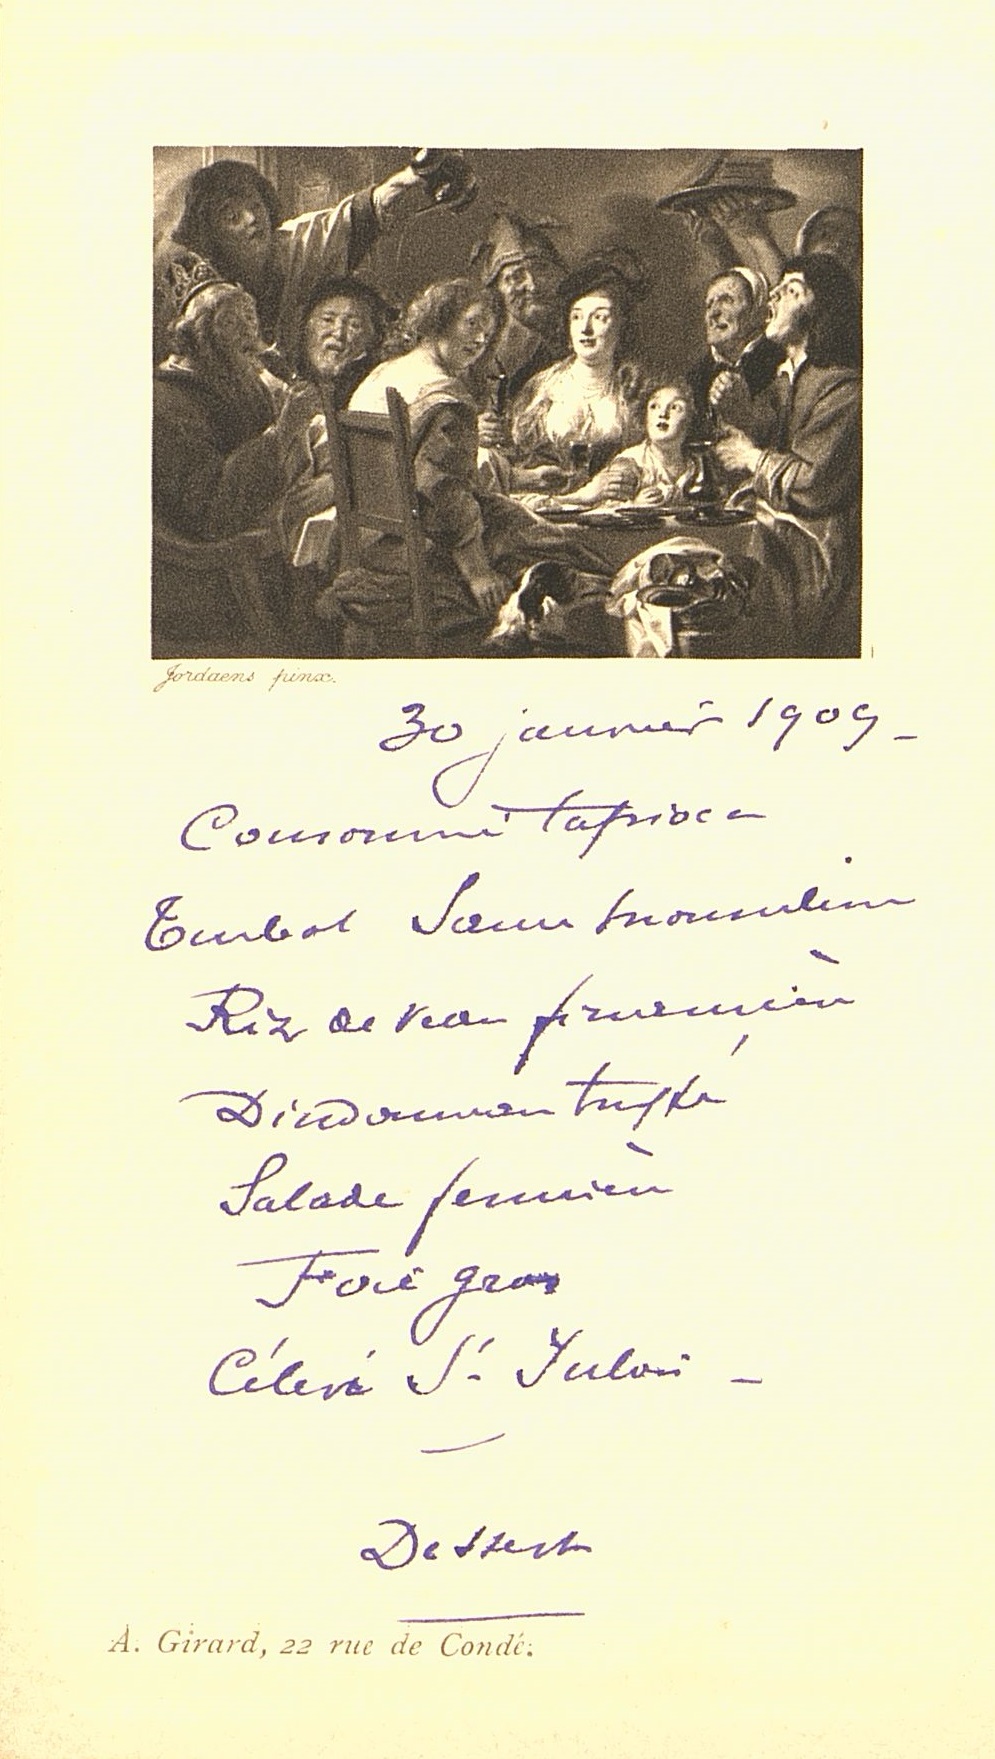 Jordaens pinx.
30 janvier 1909 -
Consommé tapioca
Turbot Sauce mousseline
Riz de veau financière
Dindonneau truffé
Salade fermière
Foie gras
Céleri St. Julien -
Dessert
A. Girard, 22 rue de Condé.